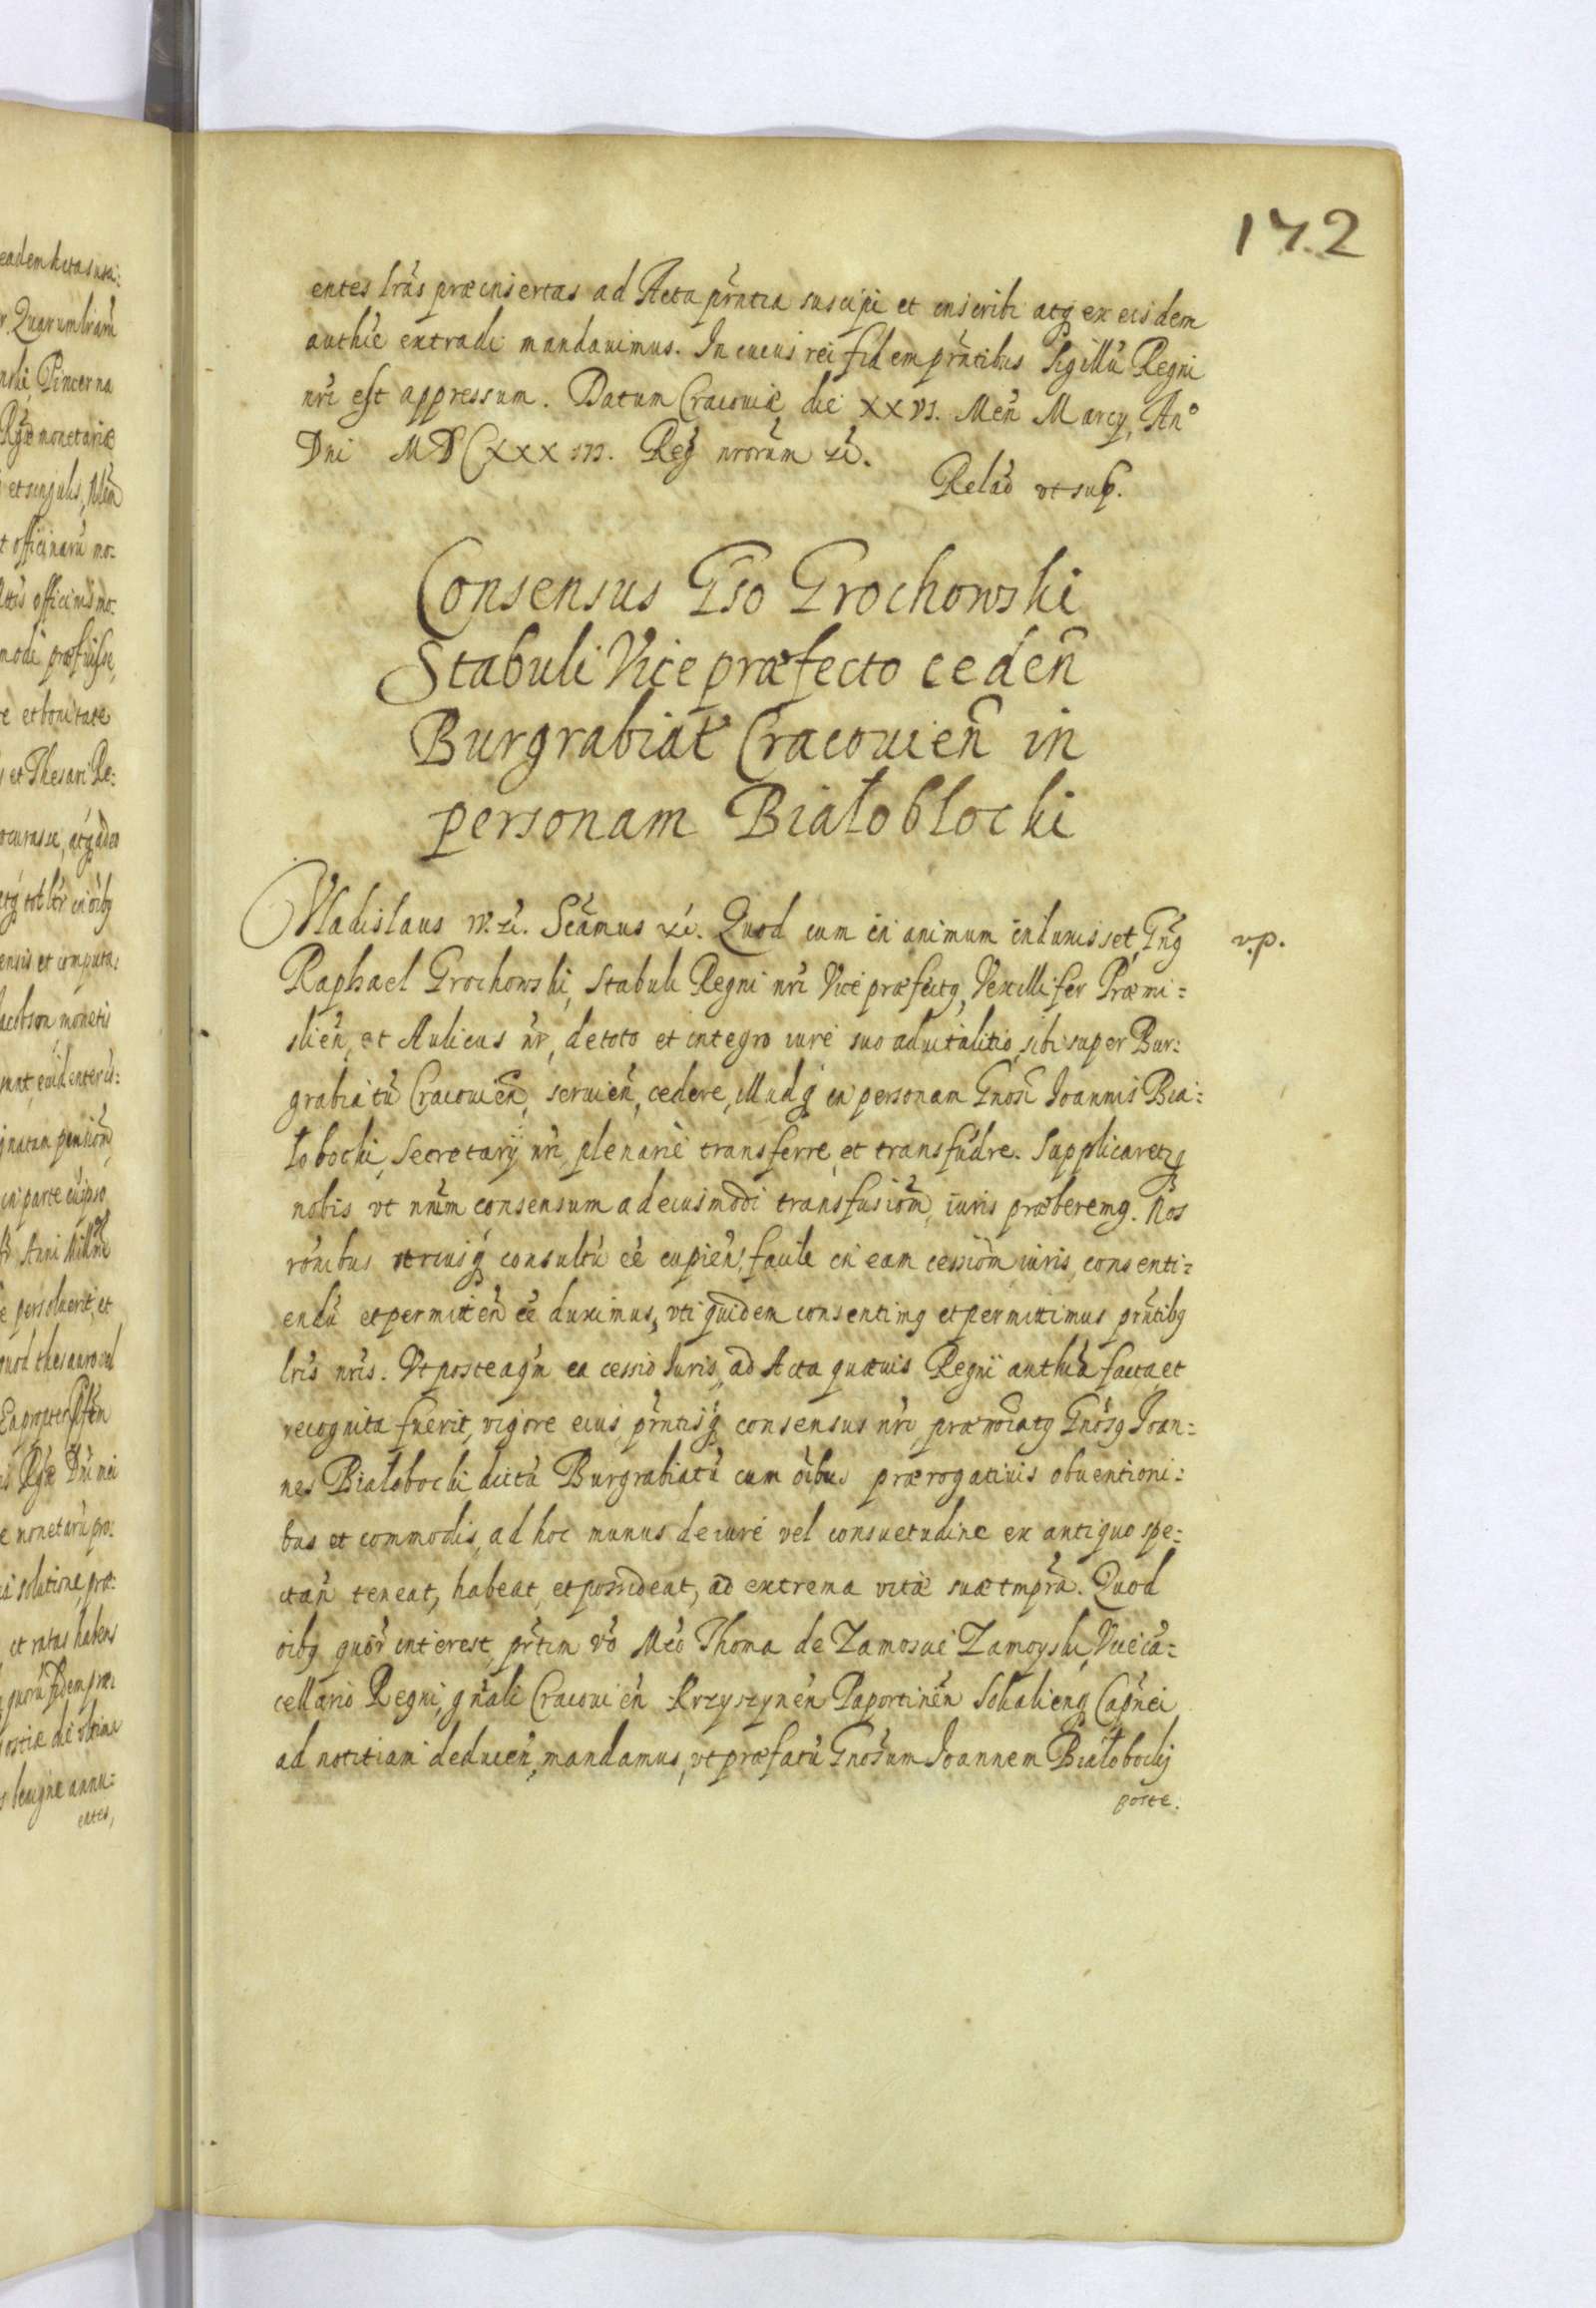 172
entes lrãs præinsertas ad Acta prñtia suscipi et inscribi atq ex eisdem
authẽ extradi mandauimus. In cuius rei fidem prñtibus Sigillũ Regni
nrĩ est appressum. Datum Cracouiæ die XXVI. Meñ Marcy, Anº
Dni MDCXXXIII. Reg̃ nrorũm zc̃.
Relaõ vt sup.
Consensus Gso Grochowski
Stabuli Vice præfecto cedeñ
Burgrabiat̃ Cracouieñ in
personam Białoblocki
Vladislaus IV. zc̃. Scãmus zc̃. Quod cum in animum induxisset Gnq̃
v.p.
Raphael Grochowski, Stabuli Regni nrĩ Vice præfectq, Vexillifer Præmi=
slieñ, et Aulicus nr̃, de toto et integro iure suo aduitalitio, sibi super Bur=
grabiatũ Cracouieñ, seruieñ, cedere, illudq̃ in personam Gnosĩ Ioannis Bia=
łobocki, Secretarÿ nrĩ plenariè transferre, et transfũdre. Supplicaretq
nobis vt nrũm consensum ad eiusmodi transfusioñm iuris præberemq. Nos
roñibus vtriusq̃ consultũ eẽ cupieñ, facile in eam cessioñm iuris, consenti=
endũ et permitteñ eẽ duximus, vti quidem consentimq et permittimus prñtibq
lrĩs nrĩs. Vt posteaq̃m ea cessio Iuris, ad Acta quæuis Regni authẽa facta et
recognita fuerit, vigore eius prñtisq̃ consensus nrĩ prænoĩatq Gnosq Ioan=
nes Białobocki dictũ Burgrabiatũ cum oĩbus prærogatiuis obuentioni=
bus et commodis, ad hoc munus de iure vel consuetudine ex antiquo spe=
ctañ teneat, habeat, et possideat, ad extrema vitæ suæ tmpr̃a. Quod
oĩbq quor̃ interest, pr̃tim võ Mcõ Thoma de Zamoscie Zamoyski, Vicecã=
cellario Regni, gnãli Cracouieñ Krzyszyneñ Capñei
ad notitiam deducen, mandamus, vt præfatũ Gnosũm Ioannem Białobockj
poste.